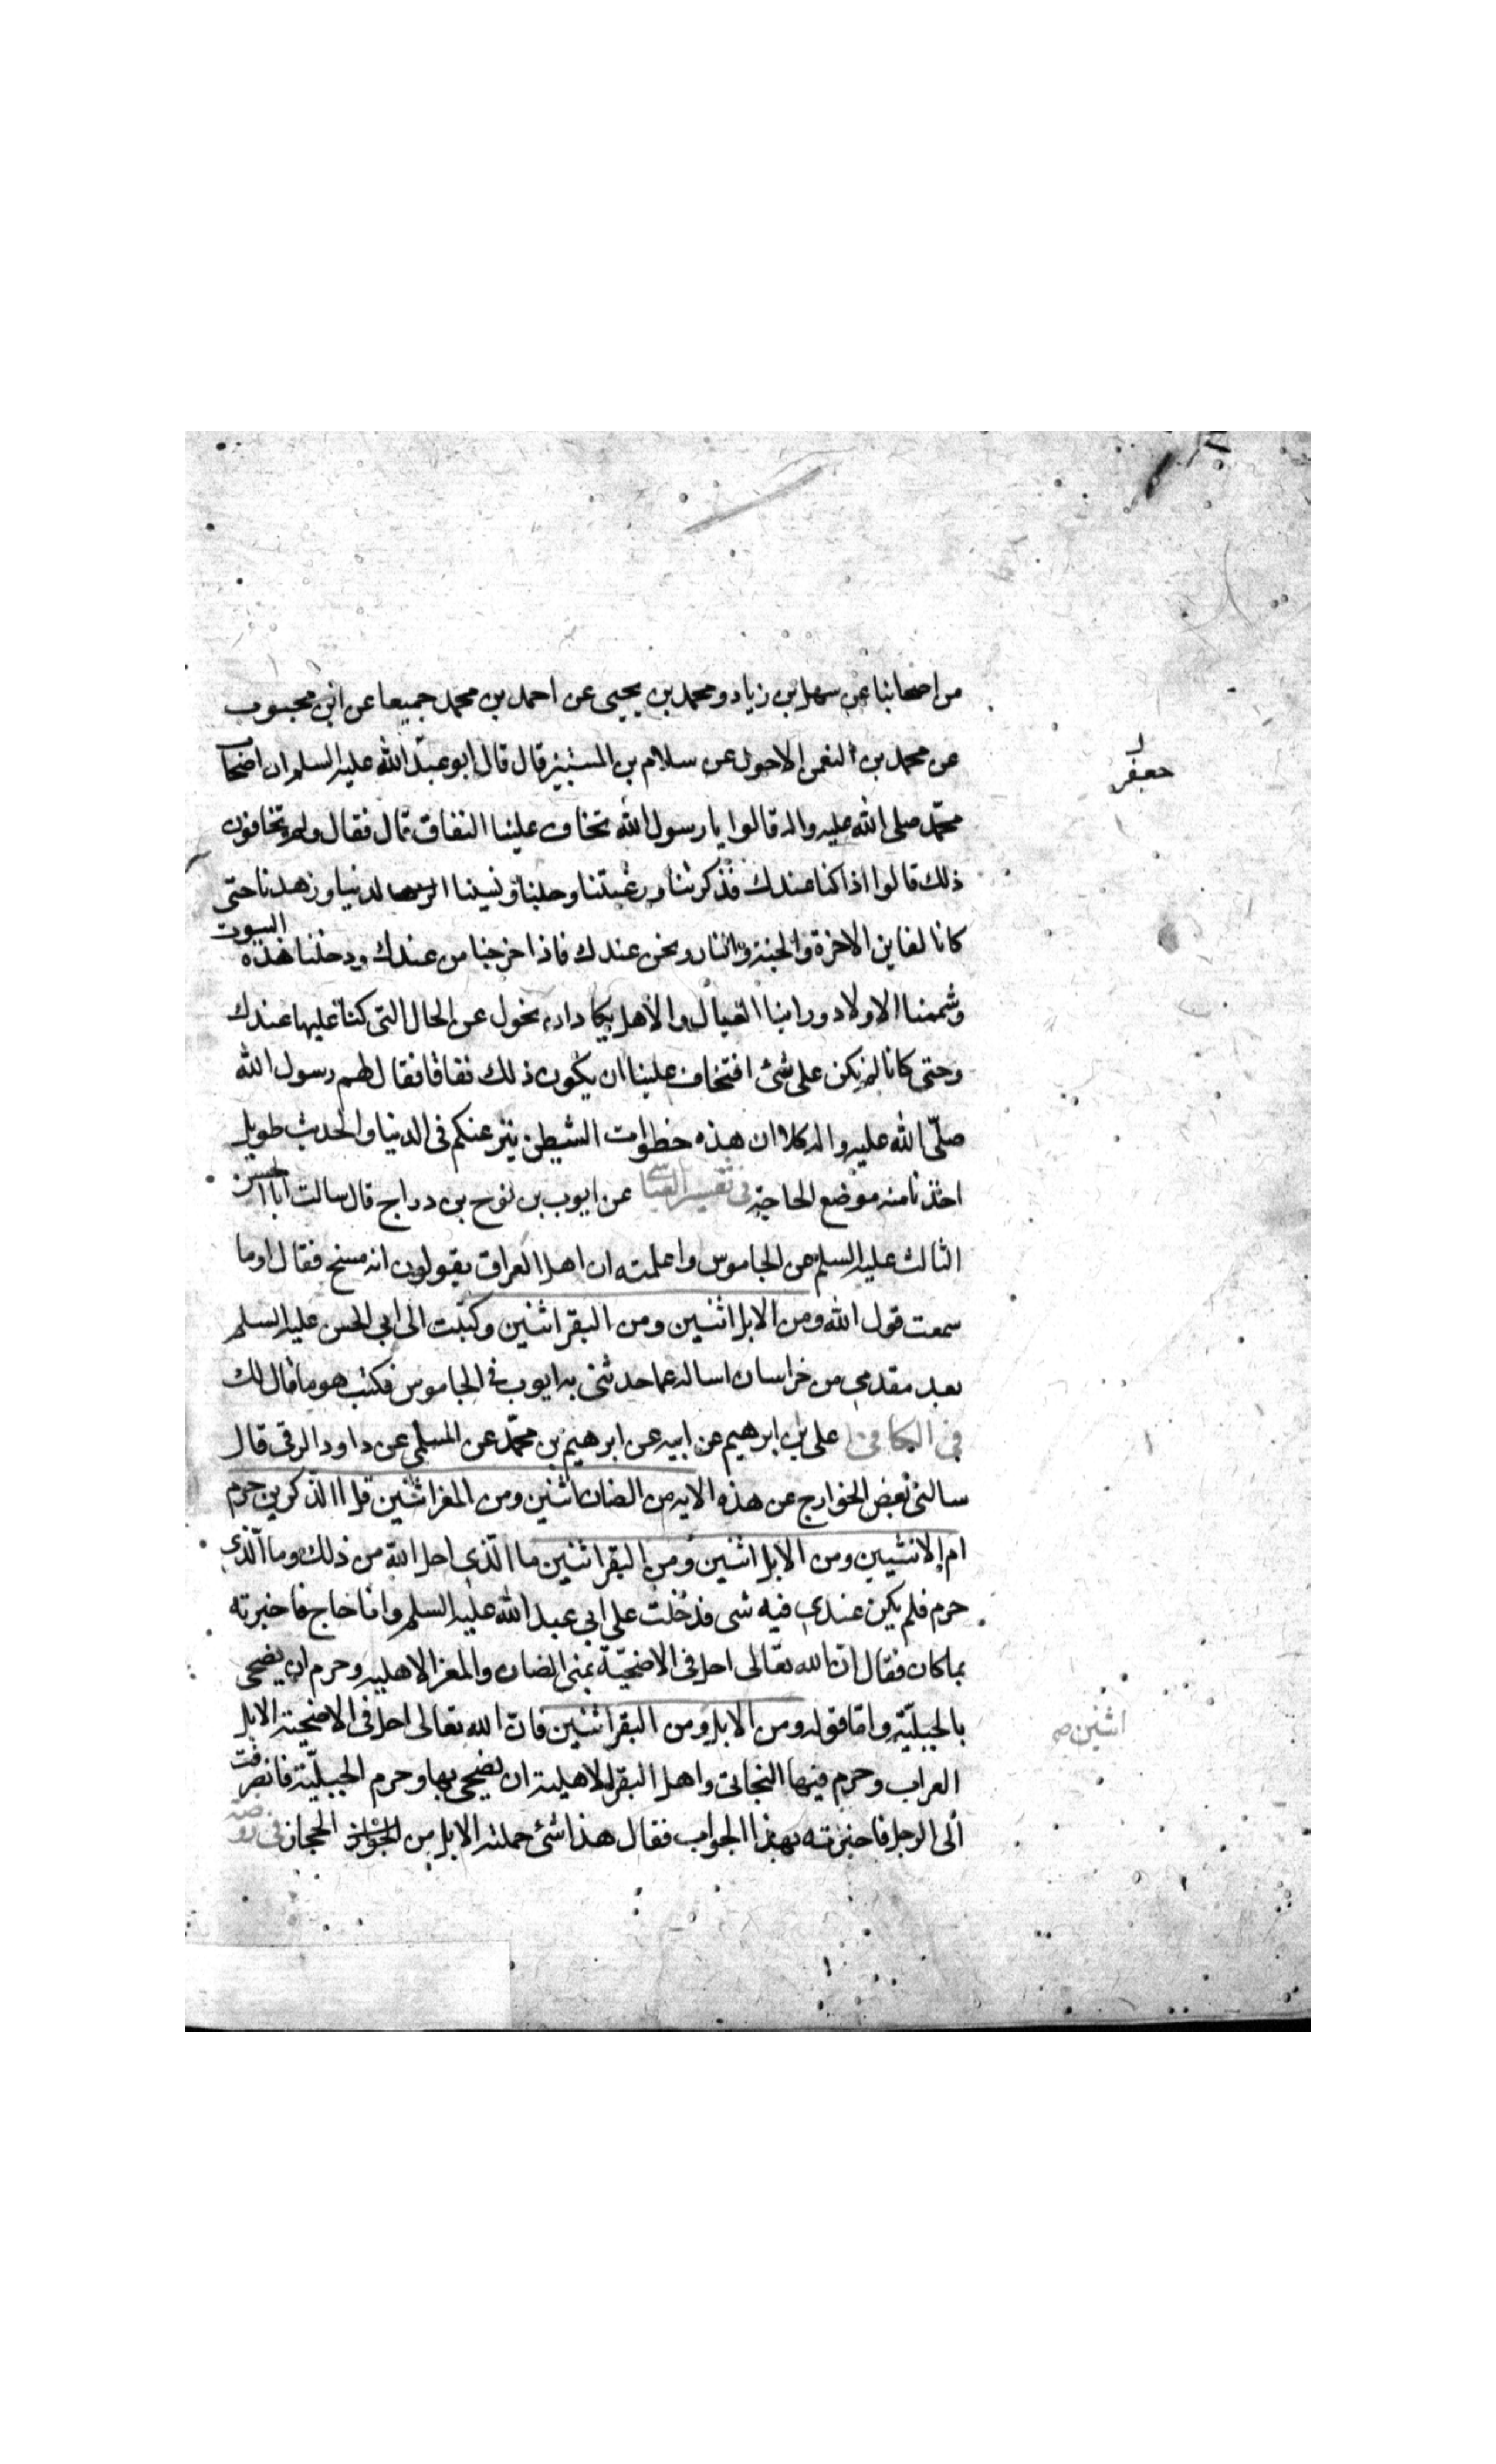 من اصحابنا عن سهل بن زياد ومحمد بن يحيى عن احمد بن محمد جميعا عن ابن محبوب
عن محمد بن النعمن الاحول عن سلام بن المستنير قال قال ابو عبد الله عليه السلم ان اصحاب
جعفر
محمد صلى الله عليه واله قالوا يا رسول الله نخاف علينا النفاق قال فقال ولم تخافون
ذلك قالوا اذا كنا عندك فذكرتنا ورغبتنا وجلنا ونسينا الدنيا وزهدنا حتى
كانا نعاين الاخرة والجنة والنار ونحن عندك فاذا خرجنا من عندك ودخلنا هذه البيوت
وشممنا الاولاد وراينا العيال والاهل يكاد ان نحول عن الحال التى كنا عليها عندك
وحتى كانا لم نكن على شئ افتخاف علينا ان يكون ذلك نفاقا فقال لهم رسول الله
صلّى الله عليه واله كلا ان هذه خطوات الشيطن عنكم فى الدنيا والحديث طويل
اخذنا منه موضع الحاجة فى تفسير العياشى عن ايوب بن نوح بن دراج قال سالت ابا الحسن
الثالث عليه السلم عن الجاموس واعلمته ان اهل العراق يقولون انه مسخ فقال اوما
سمعت قول الله ومن الابل اثنين ومن البقر اثنين وكتبت الى ابى الحسن عليه السلم
بعد مقدمى من خراسان اساله عما حدثنى به ايوب فى الجاموس فكتب هو ما قال لك
فى الكافى على بن ابرهيم عن ابيه عن ابرهيم بن محمّد عن السلمى عن داود الرقى قال
سالنى بعض الخوارج عن هذه الايه من الضان اثنين ومن المعز اثنين قل االذكرين حرم
ام الانثيين ومن الابل اثنين ومن البقر اثنين ما الّذى احل الله من ذلك وما الّذى
حرم فلم يكن عندى فيه شى فدخلت على ابى عبد الله عليه السلم وانا حاج فاخبرته
بما كان فقال انّ الله تعالى احل فى الاضحيّة بمنى الضان والمعز الاهليه وحرم ان يضحى
بالجبليّة وامّا قوله ومن الابل ومن البقر اثنين فانّ الله تعالى احل فى الاضحية الابل
اثنين صح
العراب وحرم فيها البخاتى واهل البقر الاهلية ان يضحى بها وحرم الجبليّة فانصرفت
الى الرجل فاخبرته بهذا الجواب فقال هذا شئ حملته الابل من الحجاز فى روضة